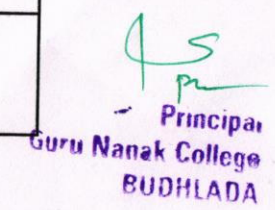 Principal
Guru Nanak College
BUDHLADA